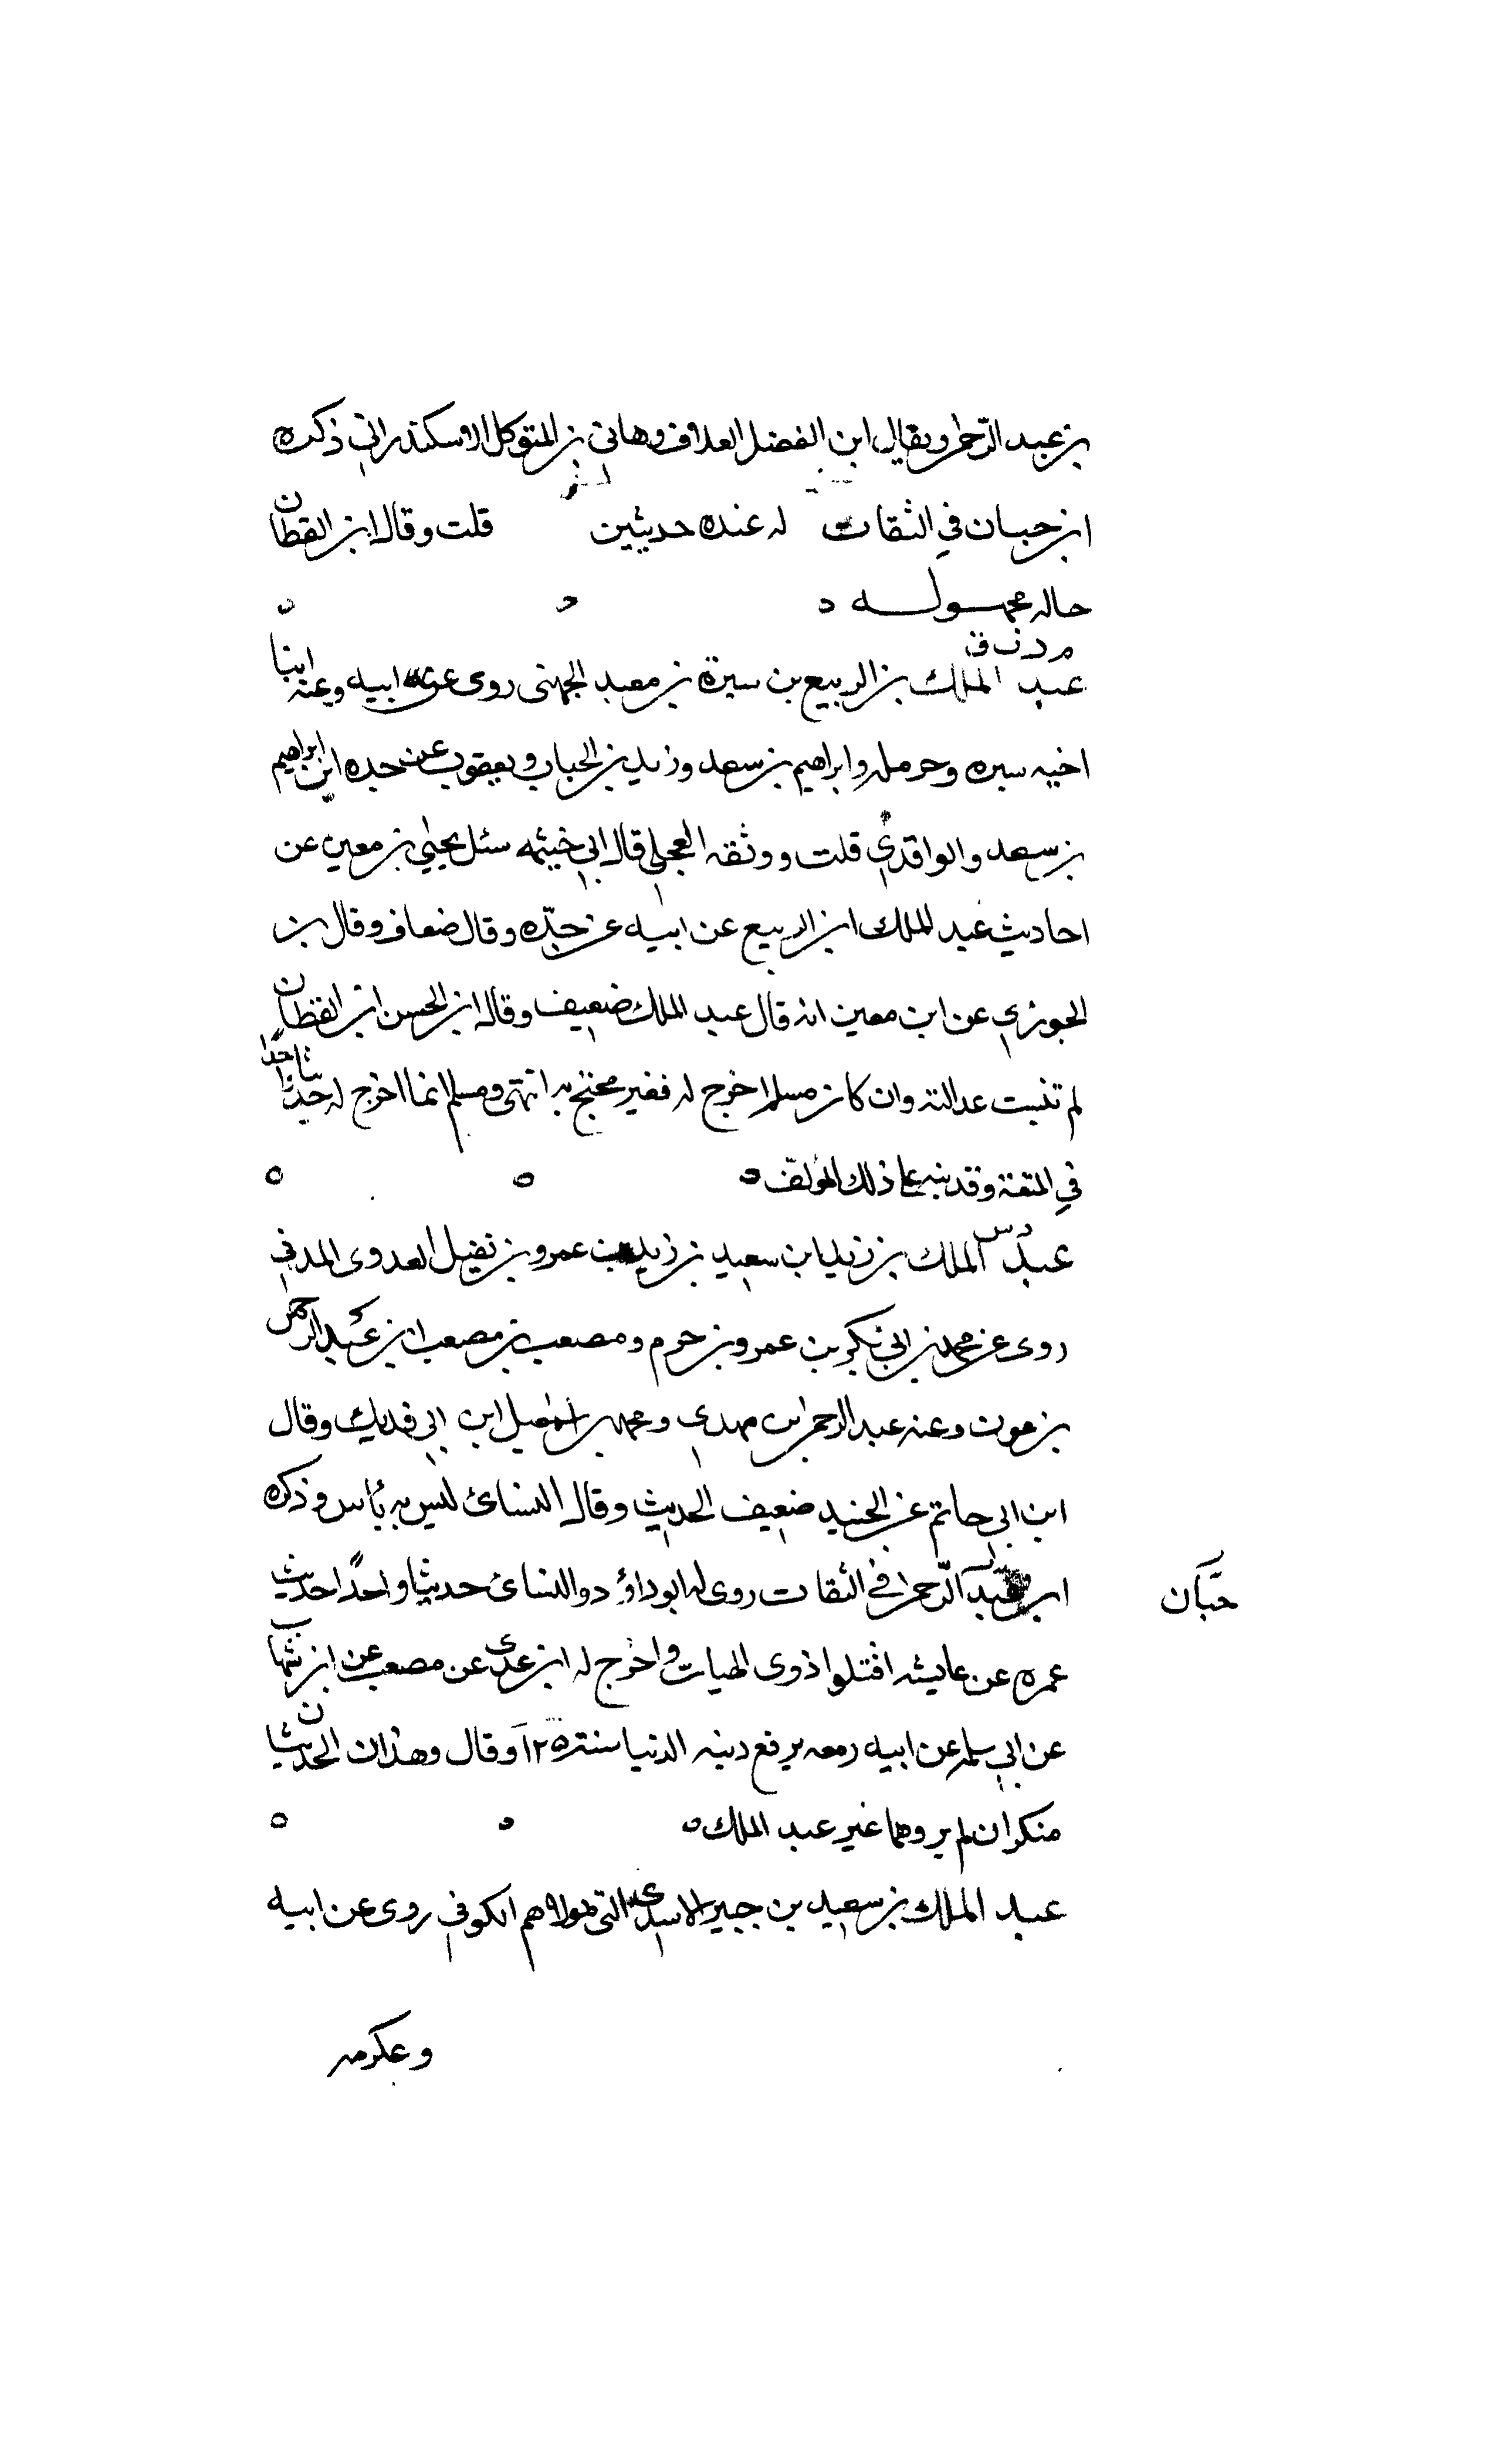 بن عبد الرحمن ويقال ابن الفضل العلاف وهانى بن المتوكل الاسكندراني ذكره
ابن حبان في الثقات له عنده حديثين قلت وقال ابن القطان
حاله مجهوله
م د ت ق
عبد الملك بن الربيع بن سبرة بن معبد الجهنى روى عن ابيه وعنه ابنا
اخيه سبره وحرمله وابراهيم بن سعد وزيد بن الحباب ويعقوب عن جده ابن ابراهيم
بن سعد والواقدي قلت ووثقه العجلي قال ابي خيثمه سئل يحيى بن معين عن
احاديث عبد الملك ابن الربيع عن ابيه عن جدّه وقال ضعاف وقال بن
الجوزي عن ابن معين انه قال عبد الملك ضعيف وقال ابن الحسن ابن القطان
لم تثبت عدالته وان كان مسلم اخرج له فغير محتج به انتهى ومسلم انما اخرج له حديثا واحدًا
في المتعة وقد نبه على ذلك المؤلف
د س
عبد الملك بن زيد ابن سعيد بن زيد بن عمرو بن نفيل العدوى المدني
روى عن محمد بن ابي بكر بن عمرو بن حزم ومصعب بن مصعب ابن عبد الرحمن
بن عوف وعنه عبد الرحمن ابن مهدي ومحمد بن اسمعيل ابن ابي فديك وقال
ابن ابي حاتم عن الجنيد ضعيف الحديث وقال النسائ ليس به بأس وذكره
ابن عبد الرحمن في الثقات روى له ابو داؤد والنسائ حديثا واحدًا حديث
حبَّان
عمره عن عايشه اقتلوا ذوى الهيات واخرج له ابن عدي عن مصعب عن ابن شهاب
عن ابي سلمه عن ابيه رمعه يرفع دينه الدنيا سنة ١٢٥ وقال وهذان الحديثان
منكران لم يروهما غير عبد الملك
عبد الملك بن سعيد بن جبير الاسدي مولاهم الكوفي روى عن ابيه
وعكرمه